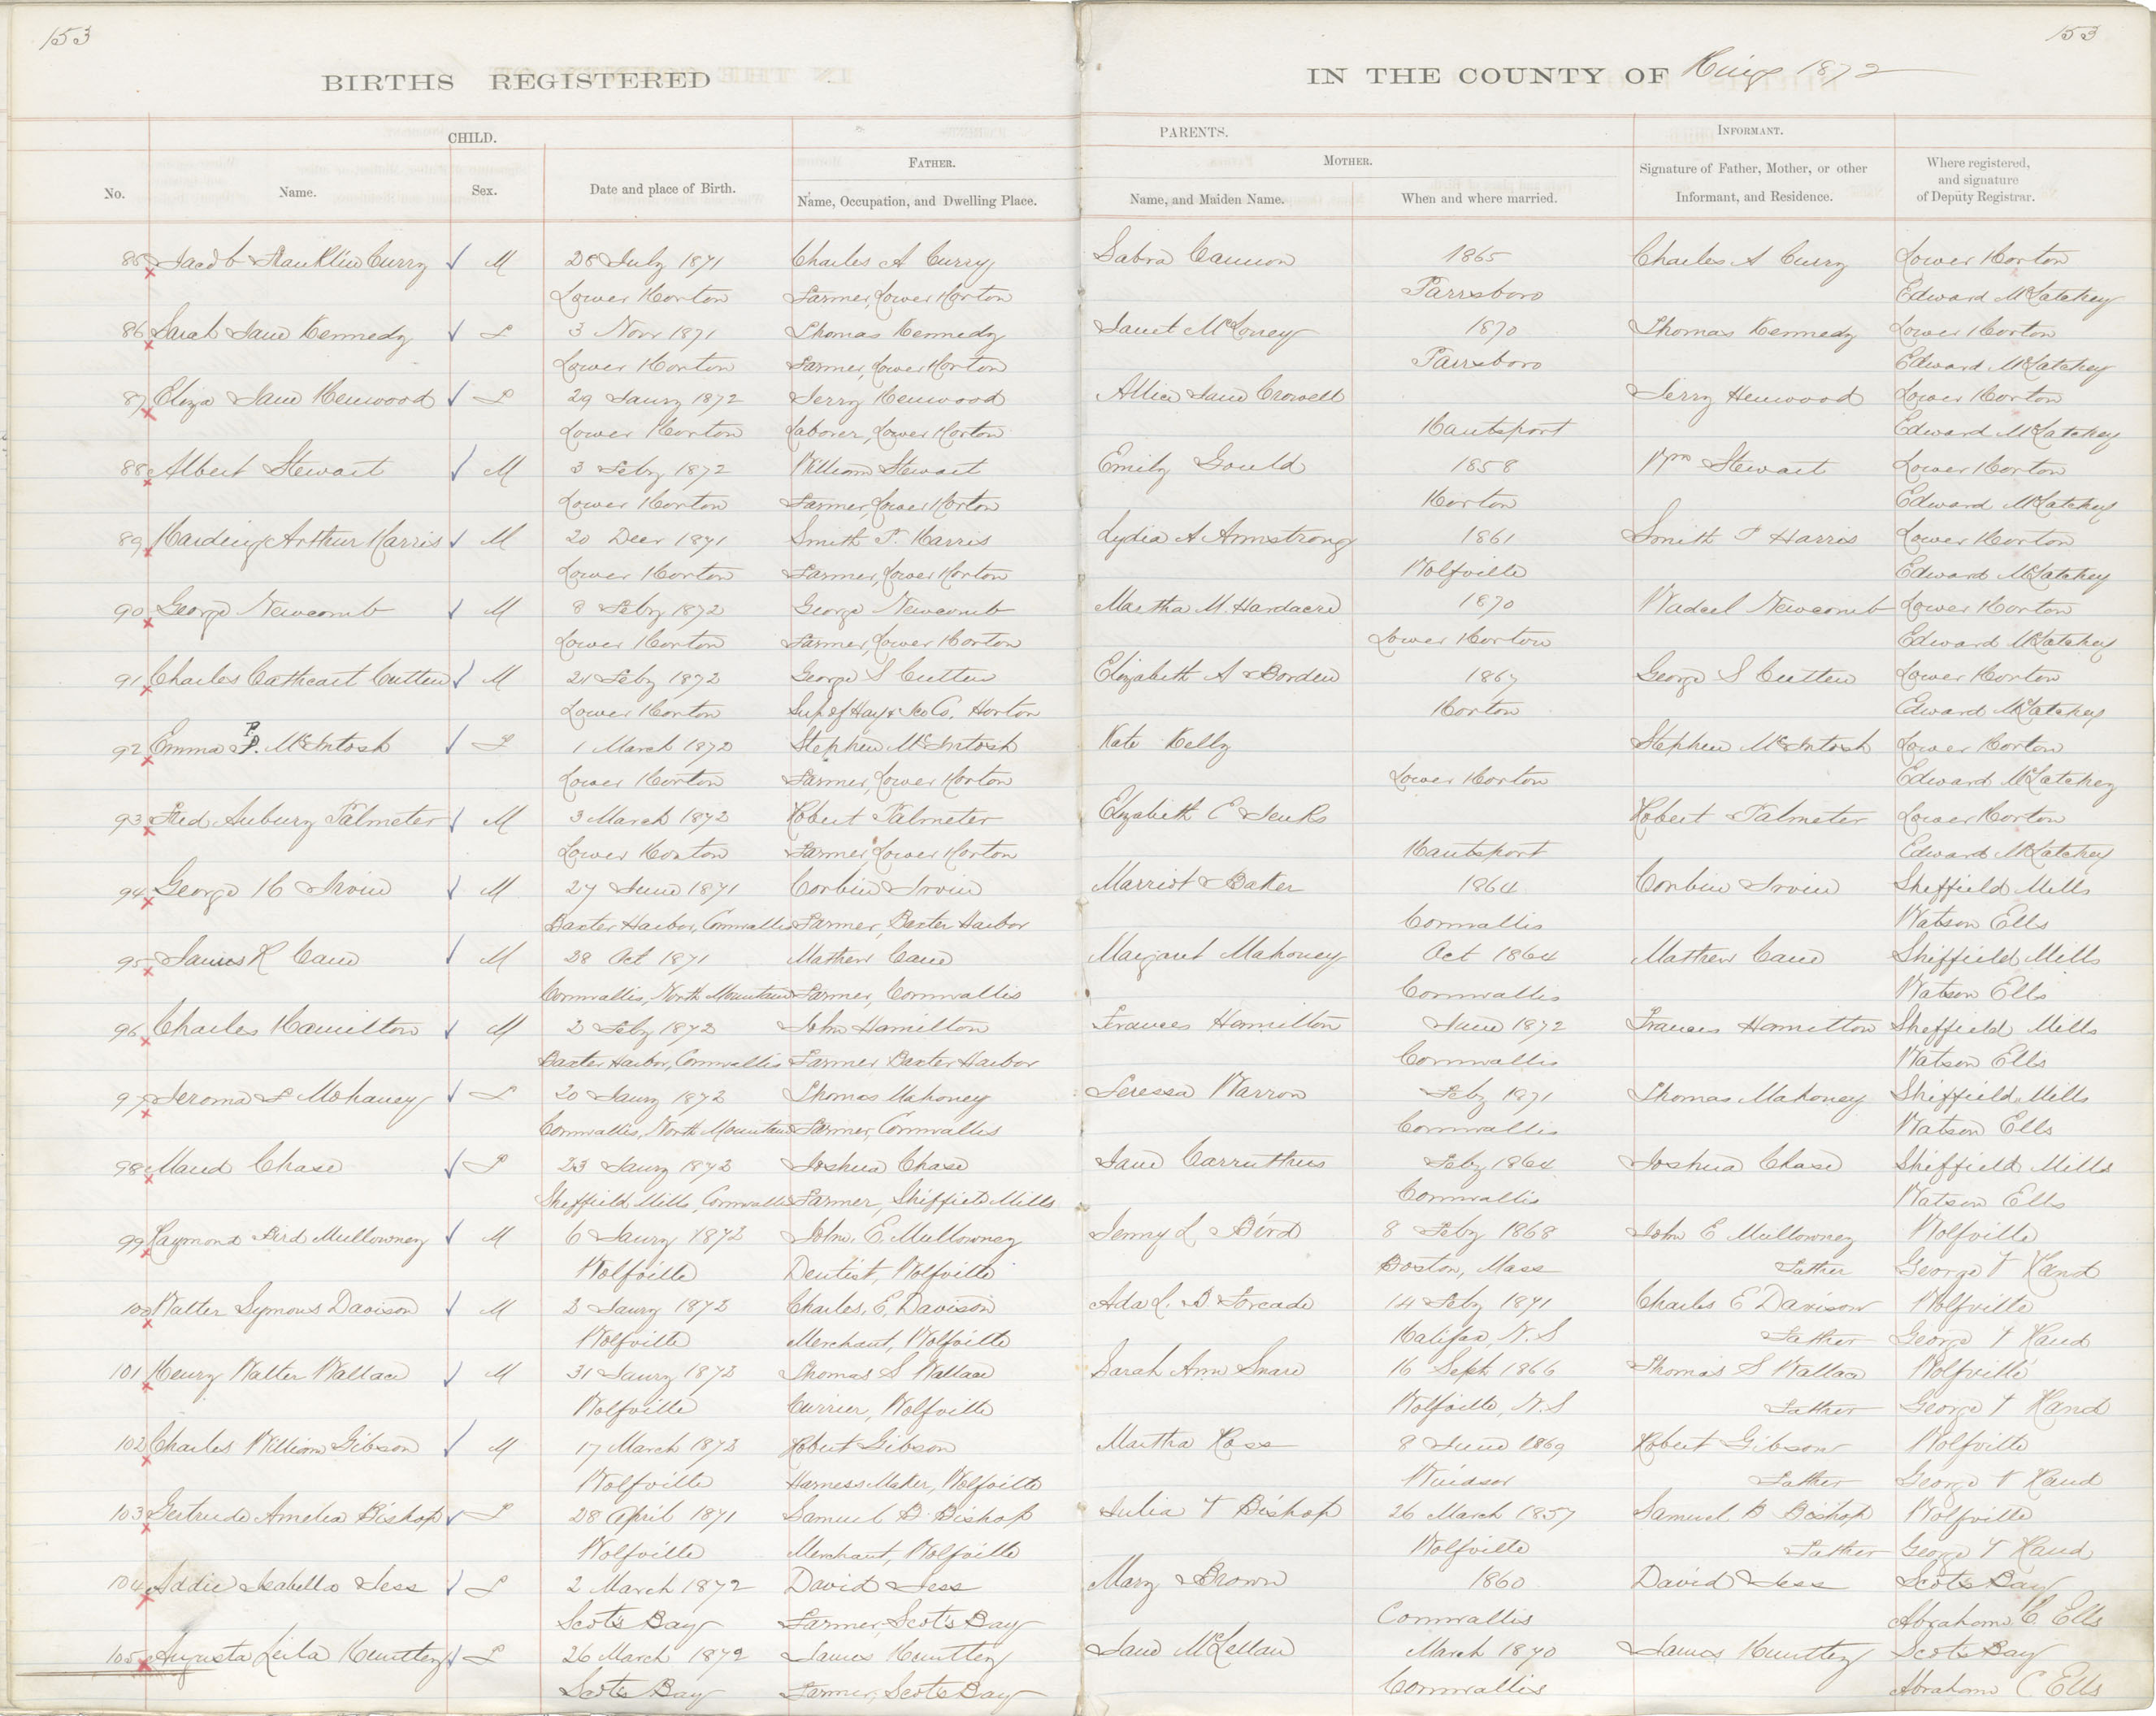 153
153
BIRTHS REGISTERED
IN THE COUNTY OF Kings 1872
CHILD.
PARENTS.
INFORMANT.
FATHER.
MOTHER.
No.
Name.
Sex.
Date and place of Birth.
Name, Occupation, and Dwelling Place.
Name, and Maiden Name.
When and where married.
Signature of Father, Mother, or other Informant, and Residence.
Where registered, and signature of Deputy Registrar.
85 Jacob Franklin Curry M 28 July 1871 Charles A Curry Sabra Cannon 1865 Charles A Curry Lower Horton
Lower Horton Farmer, Lower Horton Parrsboro Edward McLatchey
86 Sarah Jane Kennedy F 3 Novr 1871 Thomas Kennedy Janet McLoney 1870 Thomas Kennedy Lower Horton
Lower Horton Farmer, Lower Horton Parrsboro Edward McLatchey
87 Eliza Jane Henwood F 29 Jany 1872 Jerry Henwood Allice Jane Crowell Jerry Henwood Lower Horton
Lower Horton Laborer, Lower Horton Hantsport Edward McLatchey
88 Albert Stewart M 3 Feby 1872 William Stewart Emily Gould 1858 Wm Stewart Lower Horton
Lower Horton Farmer, Lower Horton Horton Edward McLatchey
89 Harding Arthur Harris M 20 Decr 1871 Smith T. Harris Lydia A Armstrong 1861 Smith T Harris Lower Horton
Lower Horton Farmer, Lower Horton Wolfville Edward McLatchey
90 George Newcomb M 8 Feby 1872 George Newcomb Martha M. Hardacre 1870 Newcomb Lower Horton
Lower Horton Farmer, Lower Horton Lower Horton Edward McLatchey
91 Charles Cathcart Cutten M 21 Feby 1872 George S Cutten Elizabeth A Borden 1867 George S Cutten Lower Horton
Lower Horton Sup of Hay & Co, Horton Horton Edward McLatchey
92 Emma P. McIntosh F 1 March 1872 Stephen McIntosh Kate Kelly Stephen McIntosh Lower Horton
Lower Horton Farmer, Lower Horton Lower Horton Edward McLatchey
93 Fred Aubury Palmeter M 3 March 1872 Robert Palmeter Elizabeth E Jenks Robert Palmeter Lower Horton
Lower Horton Farmer Lower Horton Hantsport Edward McLatchey
94 George H Irvin M 27 June 1871 Corbin Irvin Harriot Baker 1864 Corbin Irvin Sheffield Mills
Baxter Harbor, Cornwallis Farmer, Baxter Harbor Cornwallis Watson Ells
95 James R Cane M 28 Oct 1871 Mathew Cane Margaret Mahoney Oct 1864 Mathew Cane Sheffield Mills
Cornwallis, North Mountain Farmer, Cornwallis Cornwallis Watson Ells
96 Charles Hamilton M 2 Feby 1872 John Hamilton Frances Hamilton June 1872 Frances Hamilton Sheffield Mills
Baxter Harbor, Cornwallis Farmer Baxter Harbor Cornwallis Watson Ells
97 Jeroma F Mohaney F 20 Jany 1872 Thomas Mahoney Teressa Warron Feby 1871 Thomas Mahoney Sheffield Mills
Cornwallis, North Mountain Farmer, Cornwallis Cornwallis Watson Ells
98 Maud Chase F 23 Jany 1872 Joshua Chase Jane Carruthers Feby 1864 Joshua Chase Sheffield Mills
Sheffield Mills, Cornwallis Farmer, Sheffield Mills Cornwallis Watson Ells
99 Raymond Bird Mullowney M 6 Jany 1872 John. E. Mullowney Jenny L Bird 8 Feby 1868 John E Mullowney Wolfville
Wolfville Dentist, Wolfville Boston, Mass Father George T Hand
100 Walter Symons Davison M 2 Jany 1872 Charles. E. Davison Ada L. B Forcade 14 Feby 1871 Charles E Davison Wolfville
Wolfville Merchant, Wolfville Halifax, N.S Father George T Hand
101 Henry Walter Wallace M 31 Jany 1872 Thomas S Wallace Sarah Ann Snare 16 Sept 1866 Thomas S Wallace Wolfville
Wolfville Currier, Wolfville Wolfville, N.S Father George T Hand
102 Charles William Gibson M 17 March 1872 Robert Gibson Martha Ross 8 June 1869 Robert Gibson Wolfville
Wolfville Harness Maker, Wolfville Windsor Father George T Hand
103 Gertrude Amelia Bishop F 28 April 1871 Samuel B. Bishop Julia T Bishop 26 March 1857 Samuel B Bishop Wolfville
Wolfville Merchant, Wolfville Wolfville Father George T Hand
104 Addie Isabella Jess F 2 March 1872 David Jess Mary Brown 1860 David Jess Scots Bay
Scot's Bay Farmer, Scot's Bay Cornwallis Abraham C. Ells
105 Augusta Leila Huntley F 26 March 1872 James Huntley Jane McLellan March 1870 James Huntley Scots Bay
Scots Bay Farmer, Scots Bay Cornwallis Abraham C Ells